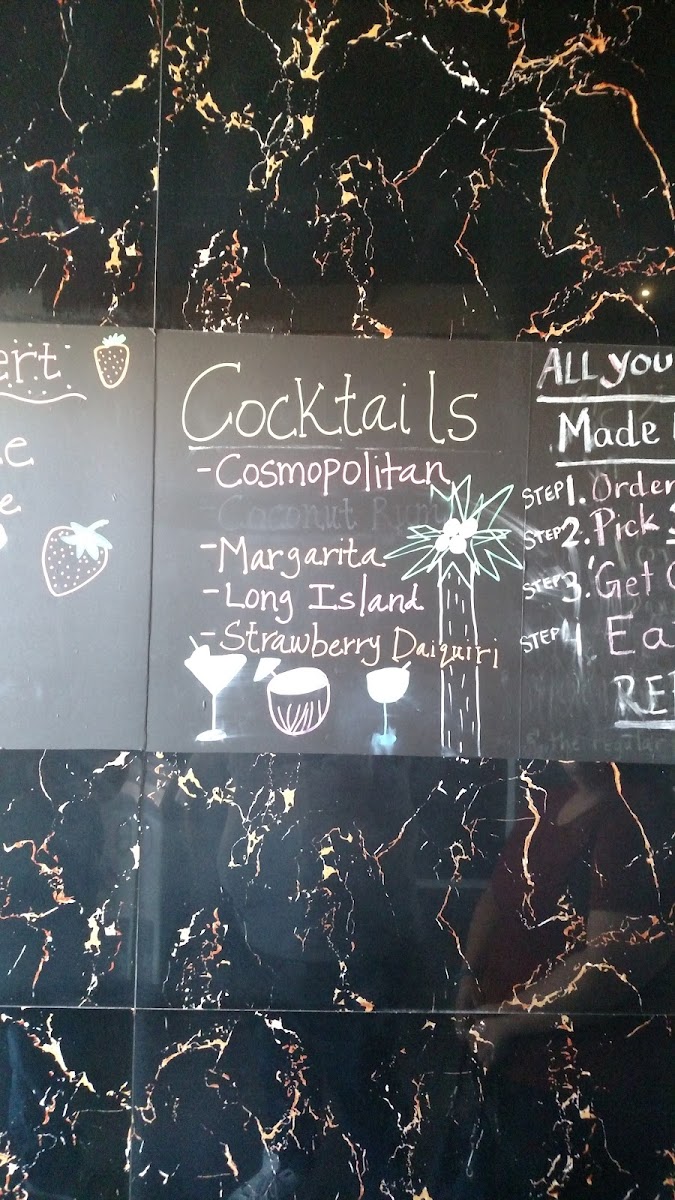 ert
e
e
Cocktails
- Cosmopolitan
Coconut Rum
- Margarita
- Long Island
- Strawberry Daiquiri
ALL YOU
Made
STEP 1. Order
STEP 2. Pick
STEP 3. Get
STEP 4. Ea
RE
the regular